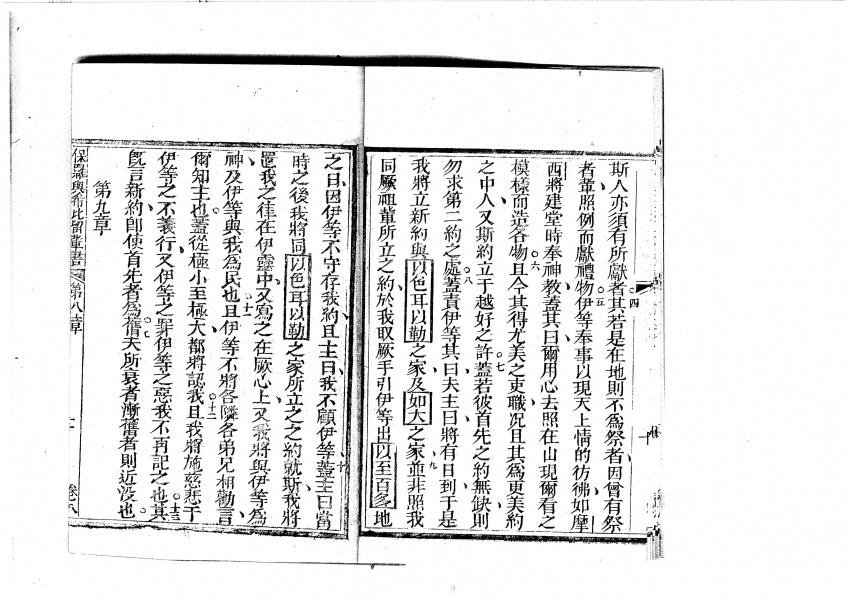 斯人亦須有所獻者其若是在地則不爲祭者因曾有祭
者輩照例而獻禮物伊等奉事以現天上情的彷彿如摩
西將建堂時奉神教蓋其曰爾用心去照在山現爾有之
模樣而造各物且今其得尤美之吏職況且其爲更美約
之中人又斯約立于越好之許蓋若彼首先之約無缺則
勿求第二約之處蓋責伊等其曰夫主曰將有日到于是
我將立新約與以色耳以勒之家及如大之家並非照我
同厥祖輩所立之約於我取厥手引伊等出以至百多地
之日因伊等不守存我約且主曰我不顧伊等蓋主曰當
時之後我將同以色耳以勒之家所立之之約就斯我將
置我之律在伊靈中又寫之在厥心上又我將與伊等爲
神及伊等與我爲民也且伊等不將各隣各弟兄相勸言
爾知主也蓋從極小至極大都將認我且我將施慈悲于
伊等之不義行又伊等之罪伊等之惡我不再記之也其
旣言新約卽使首先者爲舊夫所衰者漸舊者則近沒也
第九章
保羅與希比留輩書 第八章